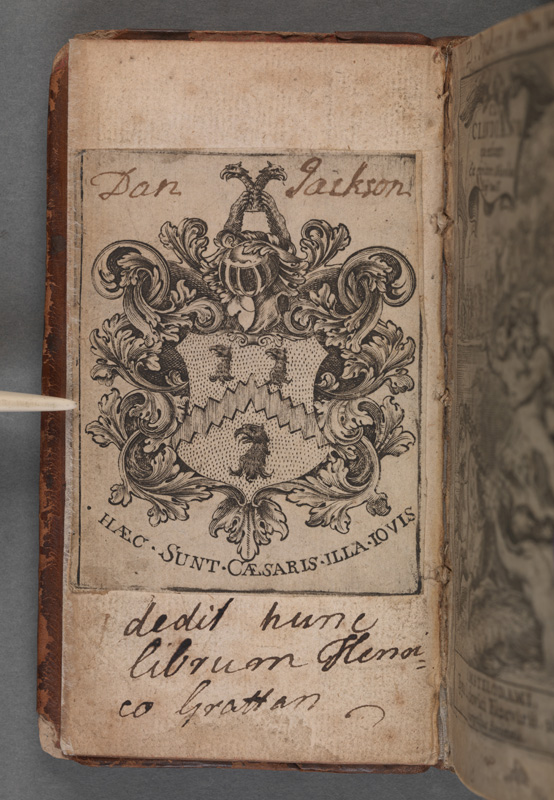 Dan Jackson
HÆC · SUNT · CÆSARIS · ILLA · IOVIS
dedit hunc
librum Henri=
co Grattan